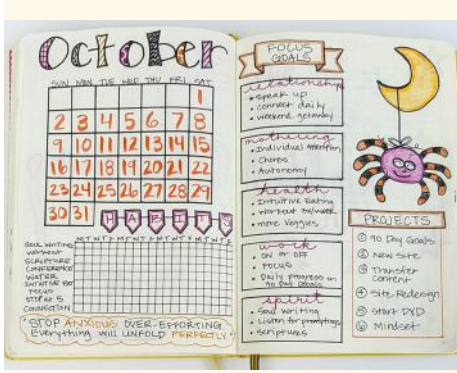 October
SUN MON TUE WED THU FRI SAT
1
2 3 4 5 6 7 8
9 10 11 12 13 14 15
16 17 18 19 20 21 22
23 24 25 26 27 28 29
30 31
HABITS
M T W T F M T W T F M T W T F M T W T F
SOUL WRITING
WORKOUT
SCRIPTURE
CONFERENCE
WATER
INTUITIVE
FOCUS
STOP AT 5
CONNECTION
"STOP ANXIOUS OVER-EFFORTING.
Everything will UNFOLD PERFECTLY"
FOCUS
GOALS
relationship
• speak up
• connect daily
• weekend getaway
mothering
• Individual Attention
• Chores
• Autonomy
health
• Intuitive Eating
• Workout
• more Veggies
work
• ON or OFF
• FOCUS
• Daily progress on
90 Day Goals
spirit
• Soul Writing
• Listen for promptings
• scriptures
PROJECTS
① 90 Day Goals
② New Site
③ Transfer
content
④ Site Redesign
⑤ Start DYD
⑥ Mindset